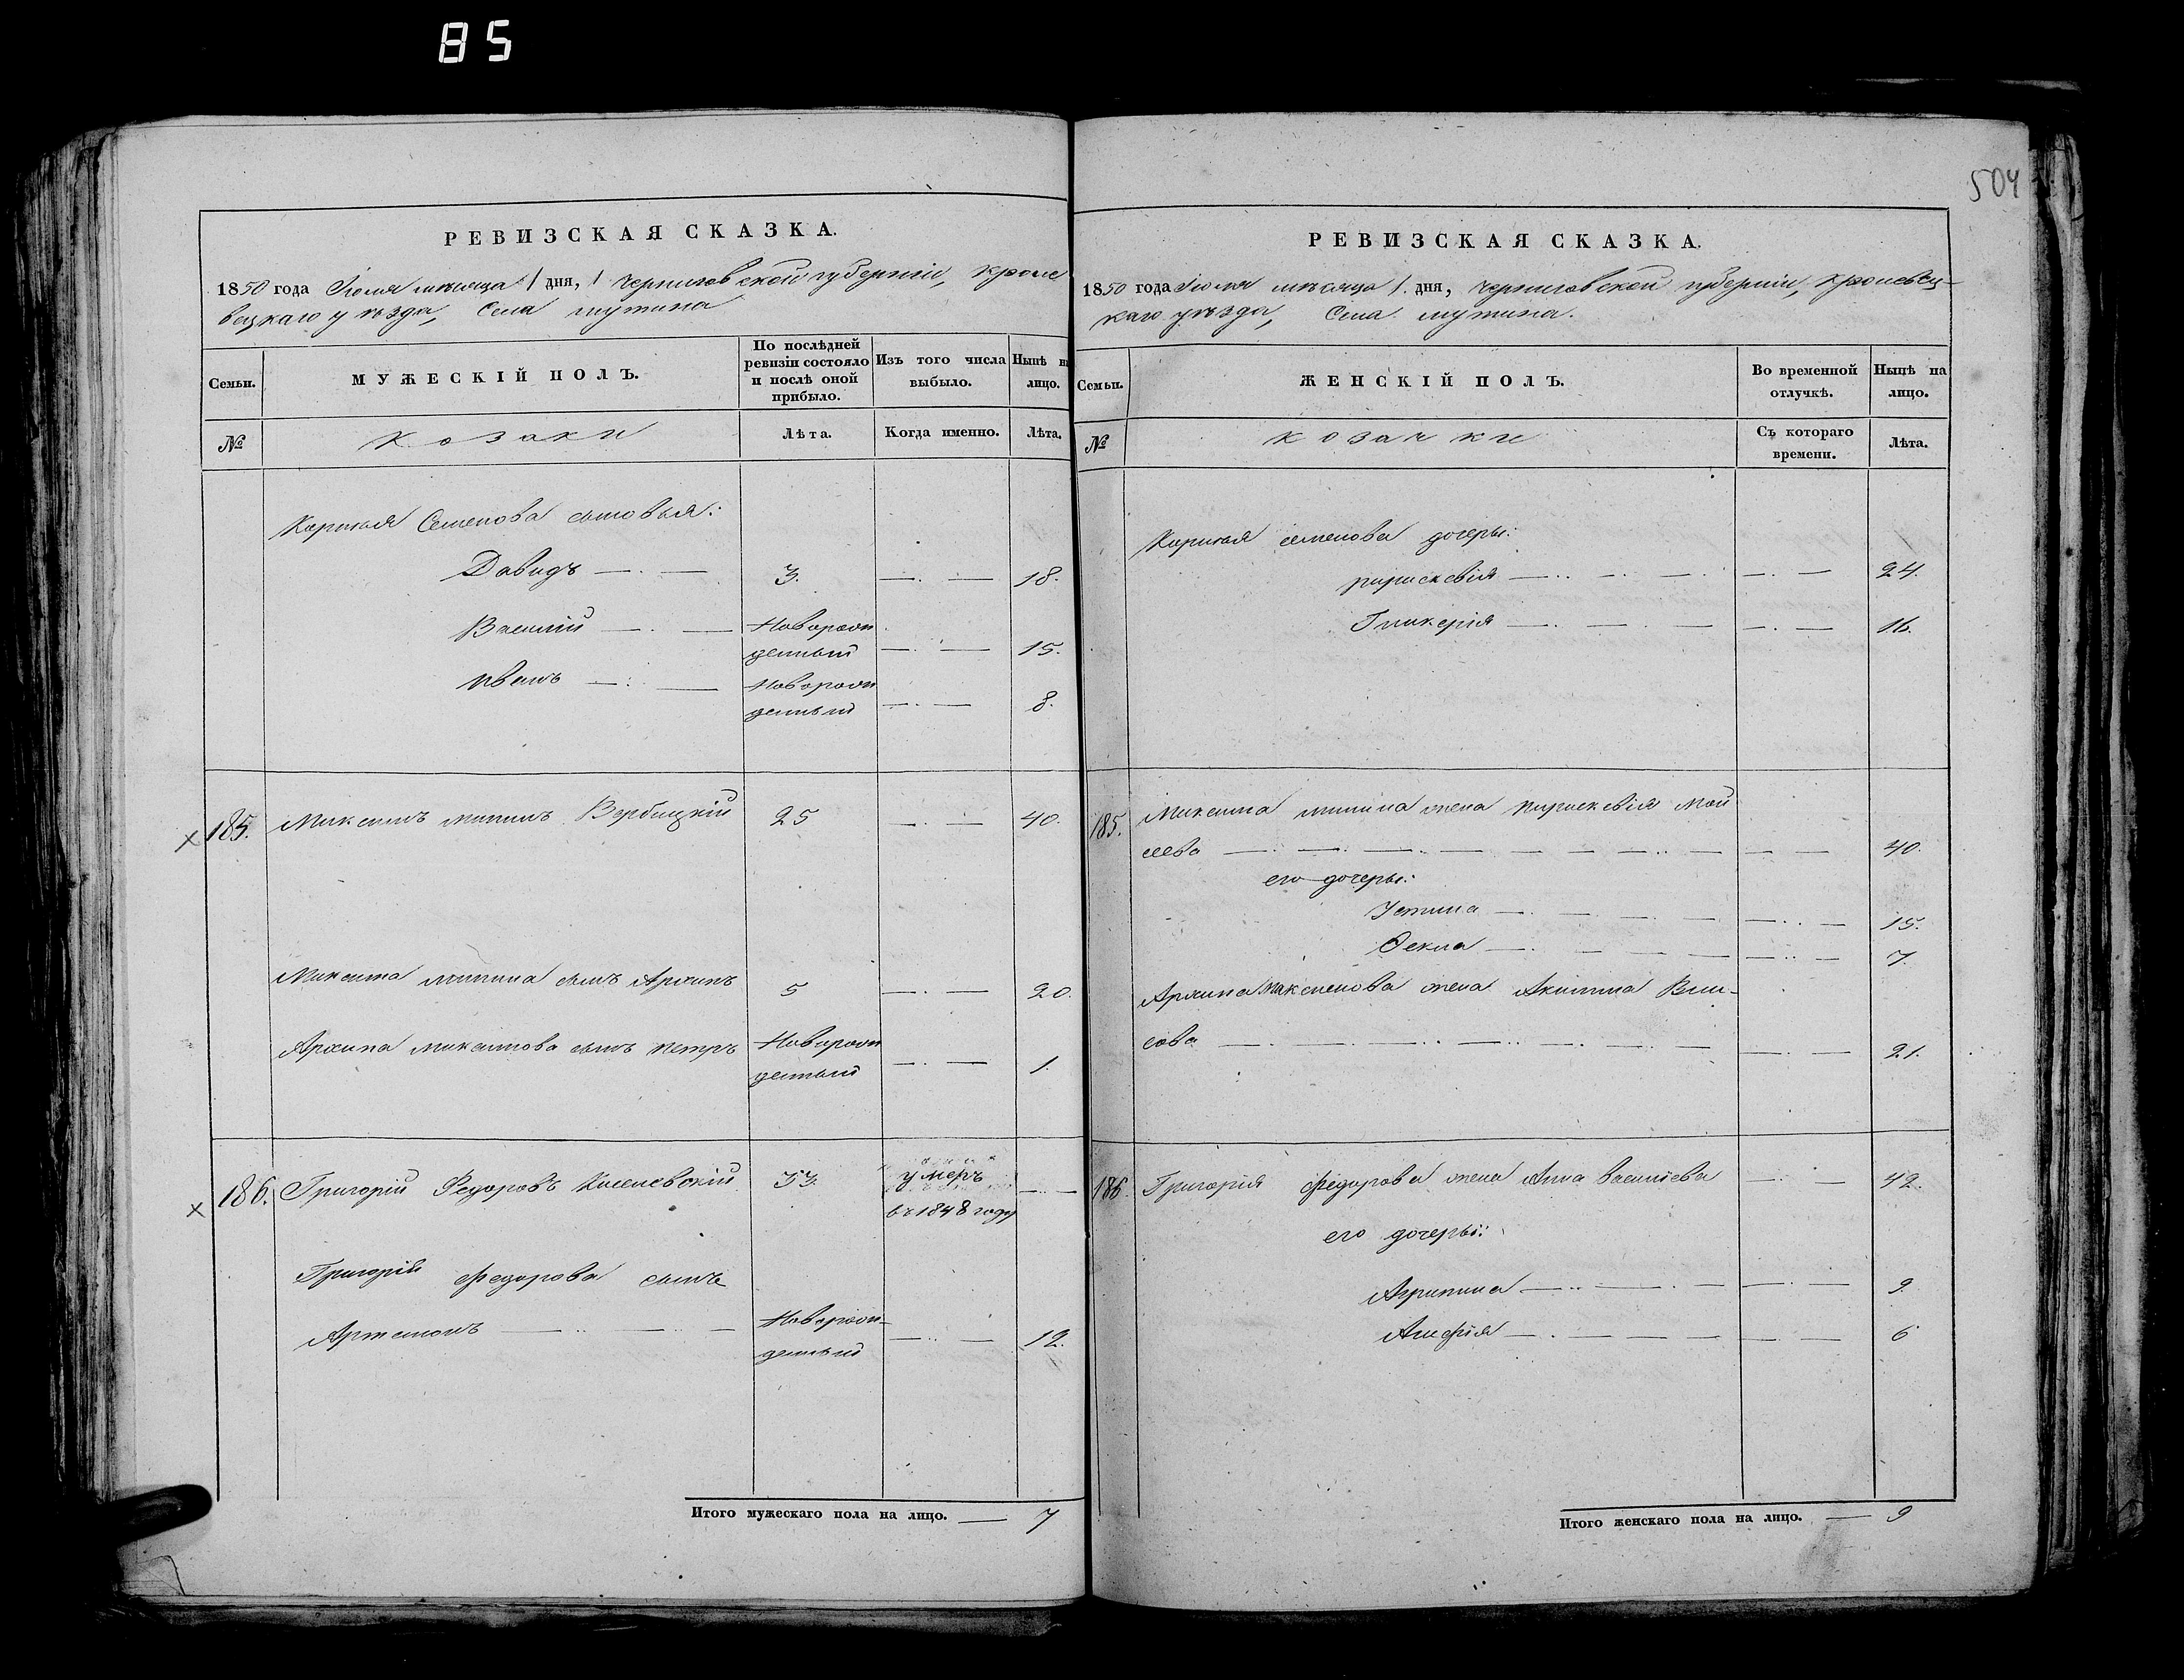 85
504
РЕВИЗСКАЯ СКАЗКА.
1850 года Іюля мѣсяца 1 дня, Черниговской губерніи, Кроле
вецкаго уѣзда, Села Мутина
Семьи.
МУЖЕСКІЙ ПОЛЪ.
По послѣдней ревизіи состояло и послѣ оной прибыло.
Изъ того числа выбыло.
Нынѣ н лицо.
№
Козаки
Лѣта.
Когда именно.
Лѣта.
Семенова сыновья:
Давидъ 3. 18.
Василій Новорож
денный 15.
Иванъ Новорож
денный 8.
185. Максимъ Мининъ Вербицкій 25 40.
Максима Минина сынъ Архипъ 5 20.
Архипа Максимова сынъ Петръ Новорож
денный 1.
186. Григорій Федоровъ 33. умеръ
въ 1848 году
Григорія Федорова сынъ
Артемонъ Новорож-
денный 12.
Итого мужескаго пола на лицо. 7
РЕВИЗСКАЯ СКАЗКА.
1850 года Іюля мѣсяца 1. дня, Черниговской губерніи, Кролевец-
каго уѣзда, Села Мутина.
Семьи.
ЖЕНСКІЙ ПОЛЪ.
Во временной отлучкѣ.
Нынѣ на лицо.
№
Козачки
Съ котораго времени.
Лѣта.
Семенова дочеры:
Параскевія 24.
Гликерія 16.
185. Максима Минина жена Параскевія Мои
сеева 40.
его дочеры:
Устина 15.
Фекла 7.
Архипа Максимова жена Акилина Вла-
сова 21.
186. Григорія Федорова жена Анна Васильева 42.
его дочеры:
Агрипина 9.
6
Итого женскаго пола на лицо. 9